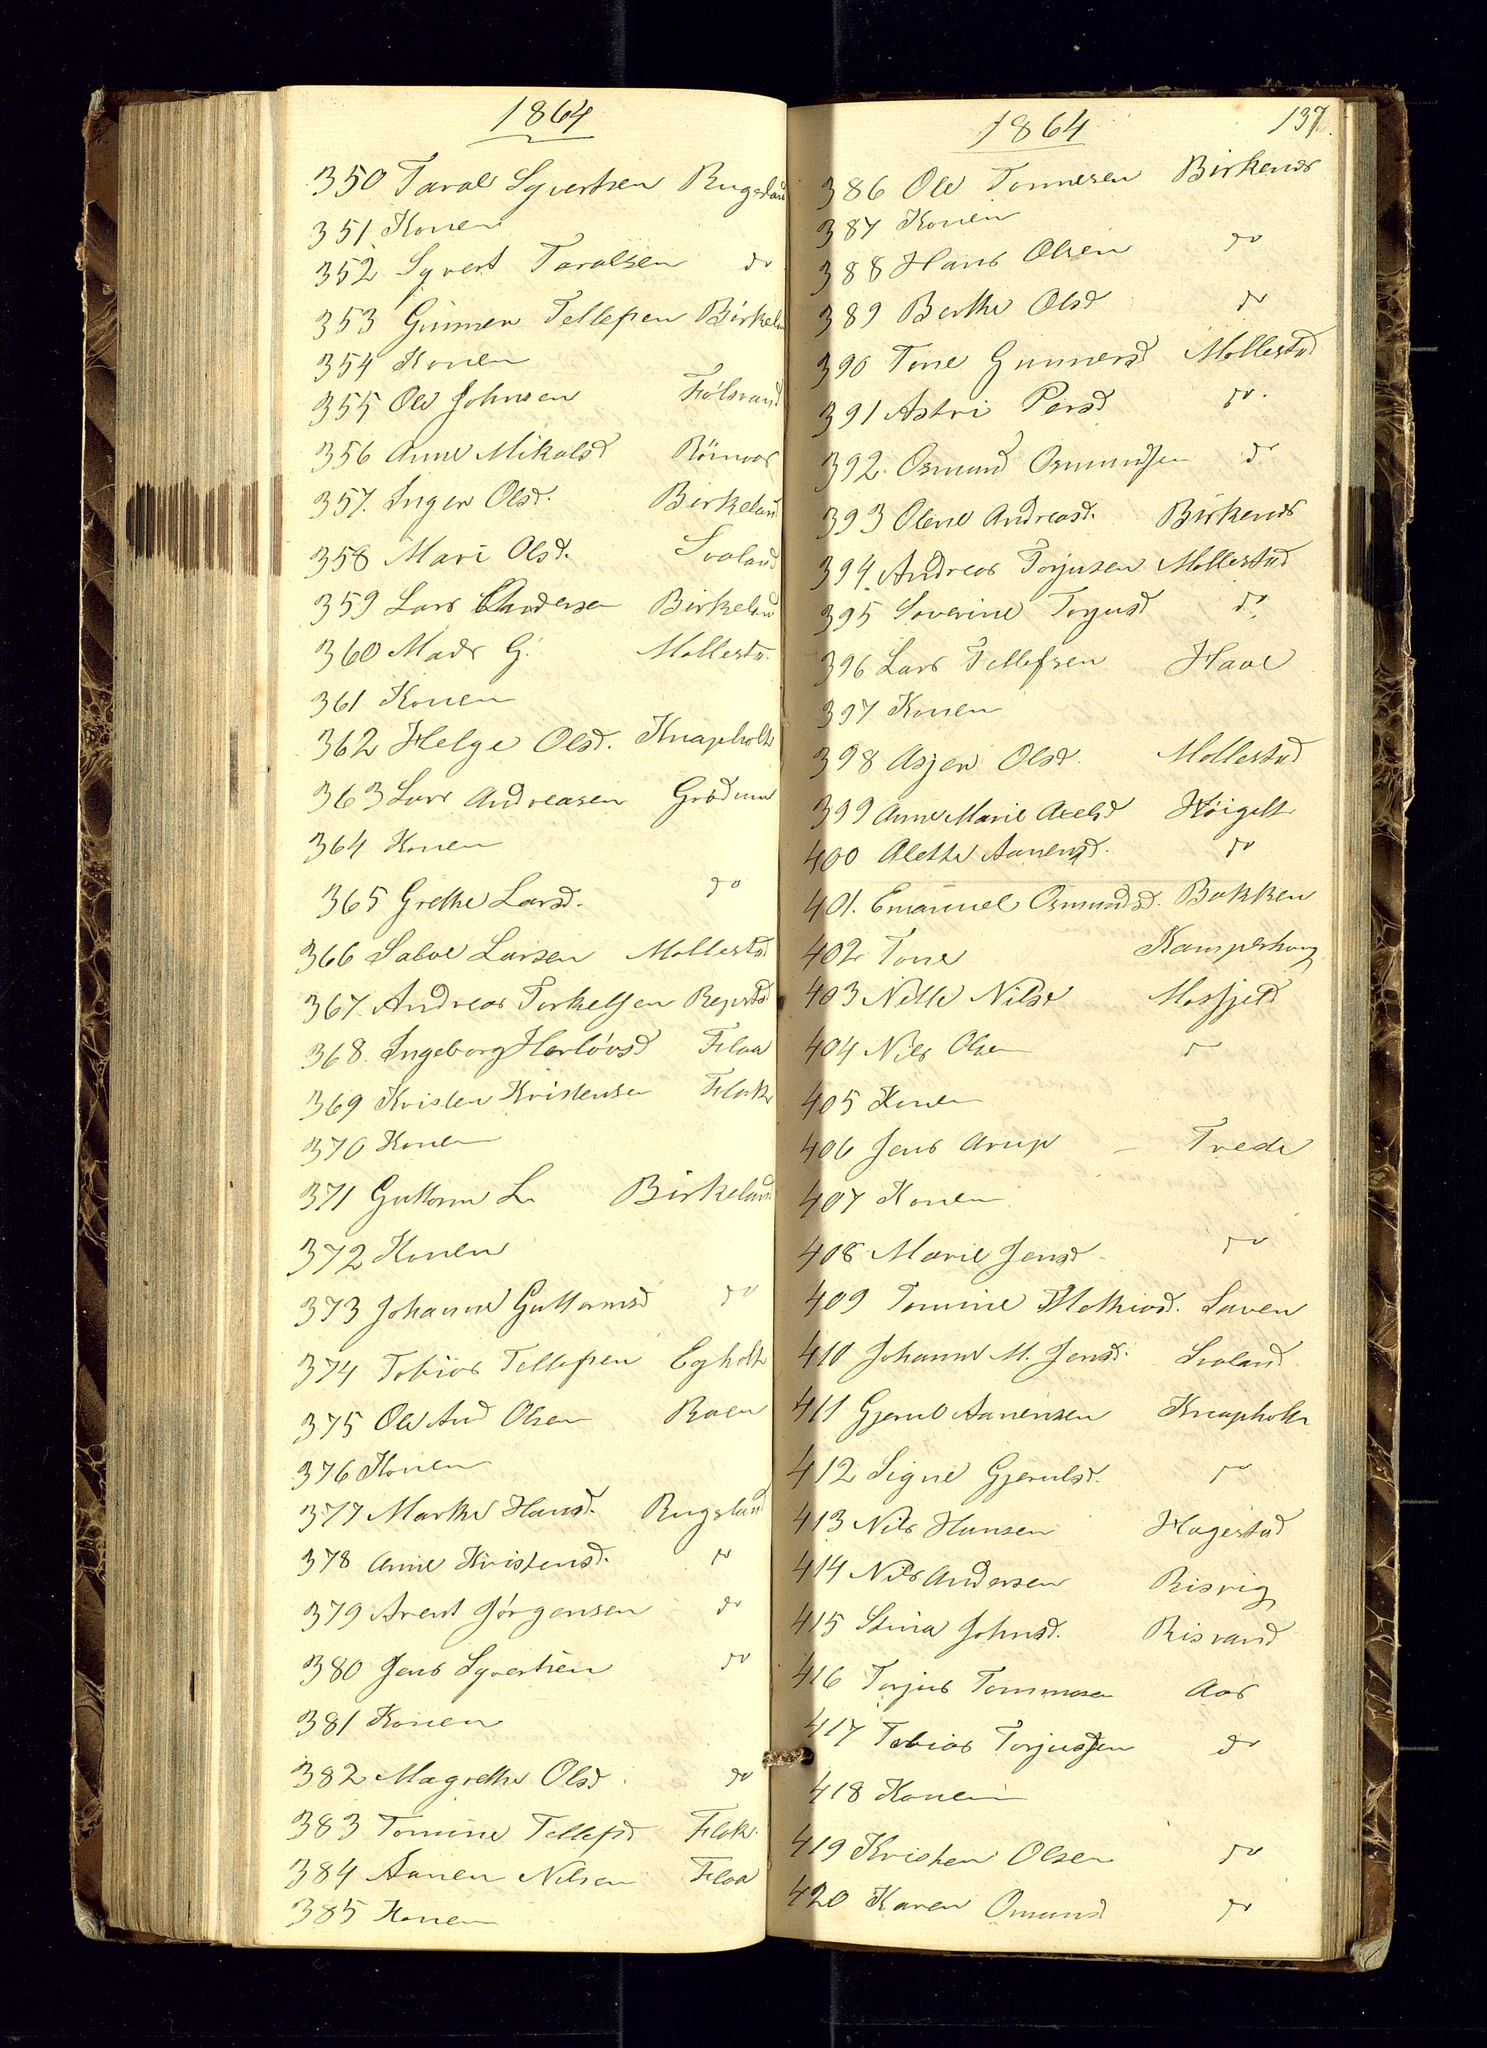 1864
350 Taral Syvertsen Rugsland
351 Konen
352 Syvert Taralsen do
353 Gunner Tellefsen Birkeland
354 Konen
355 Ole Johnsen Fiölsvand
356 Anne Mikalsd
357. Inger Olsd. Birkeland
358 Mari Olsd. Svaland
359 Lars Andersen Birkeland
360 Mads G. Mollestd.
361 Konen
362 Helge Olsd. Knapholt
363 Lars Andreasen
364 Konen
365 Grethe Larsd. do
366 Salve Larsen Mollestd
367. Andreas Torkelsen Repstd
368. Ingeborg Herlövsd Flaa
369 Kristen Kristensen Flak
370 Konen
371 Guttorm L. Birkeland
372 Konen
373 Johanne Guttormsd do
374 Tobias Tellefsen Egholt
375 Ole And Olsen Raen
376 Konen
377 Marthe Hansd. Rugsland
378 Anne Kristensd. do
379 Arent Jörgensen do
380 Jens Syvertsen do
381 Konen
382 Magrethe Olsd. do
383 Tomine Tellefsd Flak.
384 Aanen Nilsen Flaa
385 Konen
1864 137.
386 Ole Tonnesen Birkenes
387 Konen
388 Hans Olsen do
389 Berthe Olsd do
390 Tone Gunnersd Mollestad
391 Astri Persd do.
392. Osmund Osmundsen do
393 Olene Andreasd. Birkenes
394. Andreas Torjusen Mollestad
395 Severine Torjusd do
396 Lars Tellefsen Have
397 Konen
398 Asjer Olsd. Mollestad
399 Anne Marie Axelsd Höigilt
400 Alette Aanensd. do
401. Emanuel Osmundsd. Bakken
402 Tone Kamperhaug
403 Nille Nilsd Mosfjeld
404 Nils Olsen do
405 Konen
406 Jens Arup – Trede
407 Konen
408 Marie Jensd. do
409 Tomine Mathiasd. Saven
410 Johanne M. Jensd. Svaland
411 Gjerul Aanensen Knapholt
412 Signe Gjerulsd. do
413 Nils Hansen Hagestad
414 Nils Andersen Risvig
415 Stina Johnsd. Risvand
416 Torjus Tommesen Aas
417 Tobias Torjussen do
418 Konen
419 Kristen Olsen do
420 Karen Omunsd do